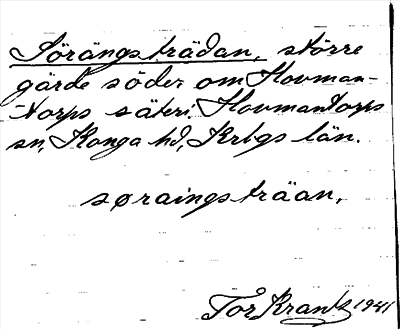 Sörängsträdan, större
gärde söder om Hovman-
torps säteri, Hovmantorps
sn, Konga hd, Krbgs län.
søraingsträan,
Tor Krantz 1941